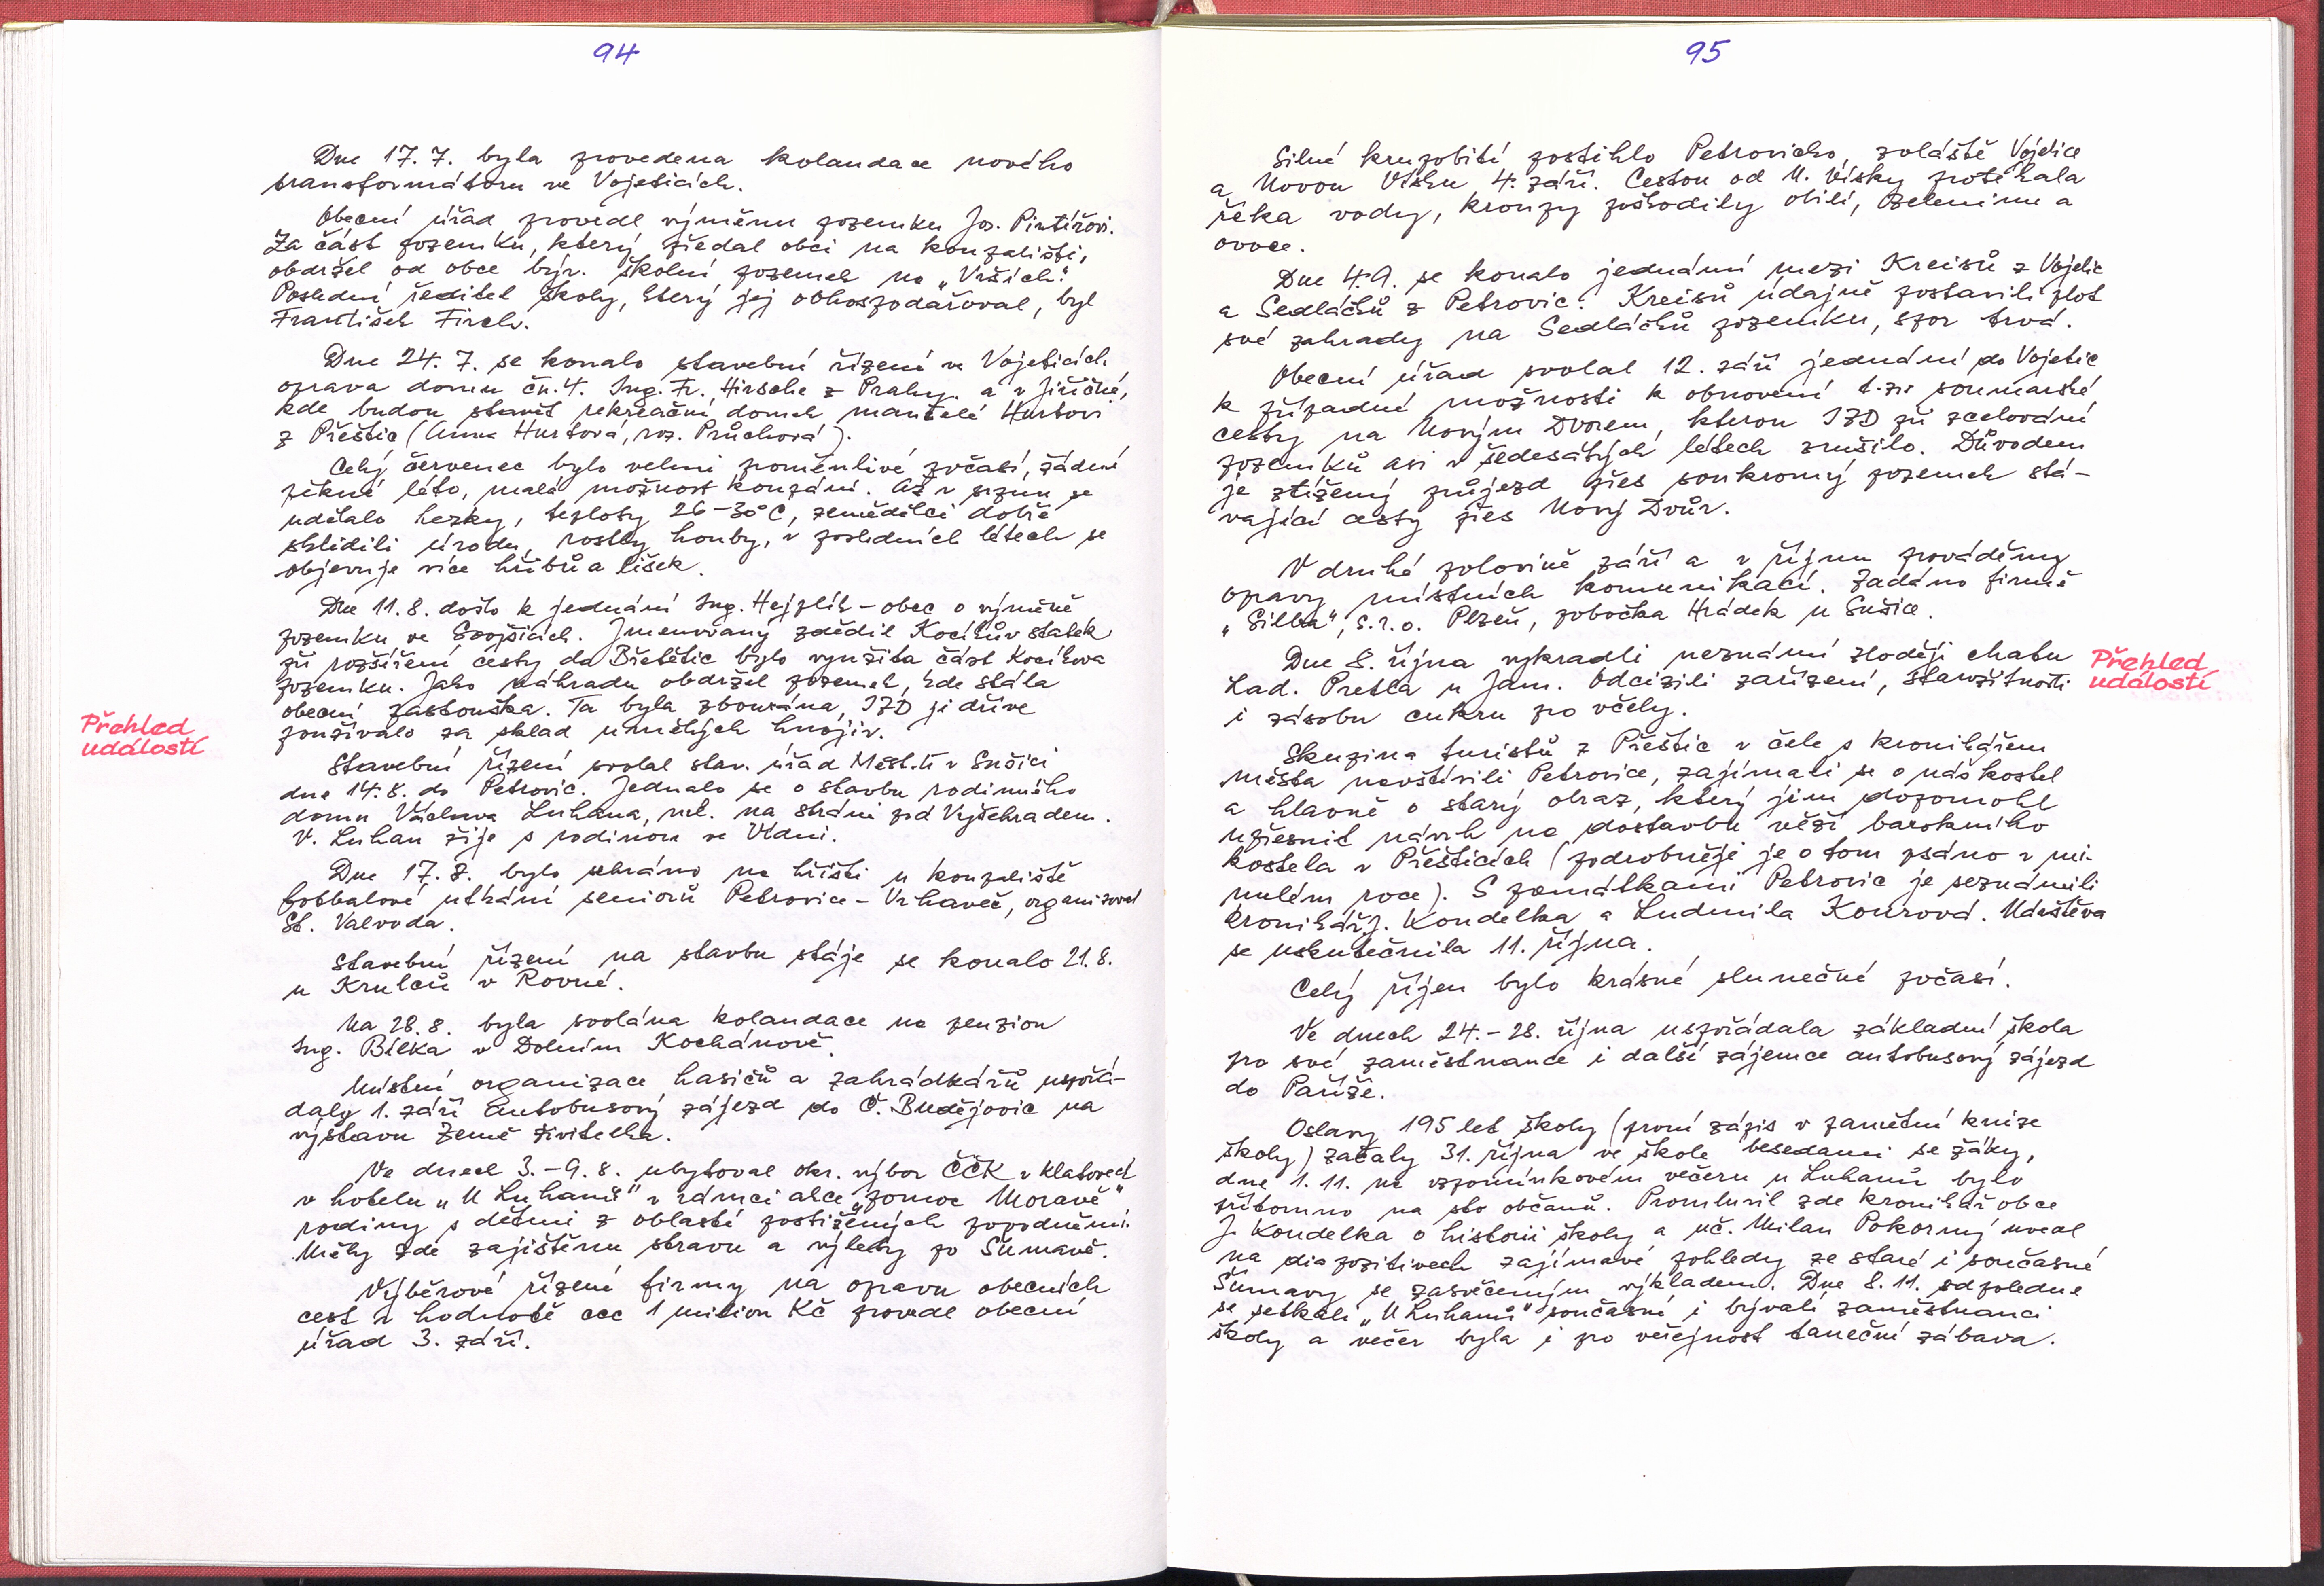 94
Dne 17. 7. byla provedena kolaudace nového
transformátoru ve Vojeticích.
Obecní úřad provedl výměnu pozemku Jos. Pintířovi.
Za část pozemku, který předal obci na koupališti,
obdržel od obce býv. školní pozemek na „Vrších".
Poslední ředitel školy, který jej obhospodařoval, byl
František Fireš.
Dne 24. 7. se konalo stavební řízení ve Vojeticích
oprava domu čn. 4. Ing. Fr. Hirsche z Prahy a v Jiřičné,
kde budou stavět rekreační domek manželé Hurtovi
z Přeštic (Anna Hurtová, roz. Průchová).
Celý červenec bylo velmi proměnlivé počasí, žádné
pěkné léto, malá možnost koupání. Až v srpnu se
udělalo hezky, teploty 26–30°C, zemědělci dobře
sklidili úrodu, rostly houby, v posledních létech se
objevuje více hřibů a lišek.
Dne 11. 8. došlo k jednání Ing. Hejplík – obec o výměně
pozemku ve Svojšicích. Jmenovaný zdědil Kocíkův statek
při rozšíření cesty do Břetětic bylo využita část Kocíkova
pozemku. Jako náhradu obdržel pozemek, kde stála
obecní pastouška. Ta byla zbourána, JZD ji dříve
používalo za sklad umělých hnojiv.
Přehled
událostí
Stavební řízení svolal stav. úřad Měst.ú v Sušici
dne 14. 8. do Petrovic. Jednalo se o stavbu rodinného
domu Václava Luhana, ml. na stráni pod Vyšehradem.
V. Luhan žije s rodinou ve Vídni.
Dne 17. 8. bylo sehráno na hřišti u koupaliště
fotbalové utkání seniorů Petrovice – Vrhaveč, organizoval
St. Valvoda.
Stavební řízení na stavbu stáje se konalo 21. 8.
u Krulců v Rovné.
Na 28. 8. byla svolána kolaudace na penzion
Ing. Bílka v Dolním Kochánově.
Místní organizace hasičů a zahrádkářů uspořá-
daly 1. září autobusový zájezd do Č. Budějovic na
výstavu Země živitelka.
Ve dnech 3.–9. 8. ubytoval okr. výbor ČČK v Klatovech
v hotelu „U Luhanů" v rámci akce „pomoc Moravě"
rodiny s dětmi z oblastí postižených povodněmi.
Měly zde zajištěnu stravu a výlety po Šumavě.
Výběrové řízení firmy na opravu obecních
cest v hodnotě cca 1 milion Kč provedl obecní
úřad 3. září.
95
Silné krupobití postihlo Petrovicko, zvláště Vojetice
a Novou Vísku 4. září. Cestou od N. Vísky protékala
řeka vody, kroupy poškodily obilí, zeleninu a
ovoce.
Dne 4. 9. se konalo jednání mezi Kreisů z Vojetic
a Sedláčků z Petrovic. Kreisů údajně postavili plot
své zahrady na Sedláčků pozemku, spor trvá.
Obecní úřad svolal 12. září jednání do Vojetic
k případné možnosti k obnovení t. zv. soumarské
cesty na Novým Dvorem, kterou JZD při scelování
pozemků asi v šedesátých létech zrušilo. Důvodem
je ztížený průjezd přes soukromý pozemek stá-
vající cesty přes Nový Dvůr.
V druhé polovině září a v říjnu prováděny
opravy místních komunikací. Zadáno firmě
„Silba", s.r.o. Plzeň, pobočka Hrádek u Sušice.
Dne 8. října vykradli neznámí zloději chatu
Lad. Pretla u Jam. Odcizili zařízení, starožitnosti
i zásobu cukru pro včely.
Přehled
událostí
Skupina turistů z Přeštic v čele s kronikářem
města navštívili Petrovice, zajímali se o náš kostel
a hlavně o starý obraz, který jim dopomohl
upřesnit návrh na dostavbu věží barokního
kostela v Přešticích (podrobněji je o tom psáno v mi-
nulém roce). S památkami Petrovic je seznámili
kronikář J. Koudelka a Ludmila Kourová. Návštěva
se uskutečnila 11. října.
Celý říjen bylo krásné slunečné počasí.
Ve dnech 24.–28. října uspořádala základní škola
pro své zaměstnance i další zájemce autobusový zájezd
do Paříže.
Oslavy 195 let školy (první zápis v pamětní knize
školy) začaly 31. října ve škole besedami se žáky,
dne 1. 11. na vzpomínkovém večeru u Luhanů bylo
přítomno na sto občanů. Promluvil zde kronikář obce
J. Koudelka o historii školy a uč. Milan Pokorný uvedl
na diapozitivech zajímavé pohledy ze staré i současné
Šumavy se zasvěceným výkladem. Dne 8. 11. odpoledne
se setkali „U Luhanů" současní i bývalí zaměstnanci
školy a večer byla i pro veřejnost taneční zábava.